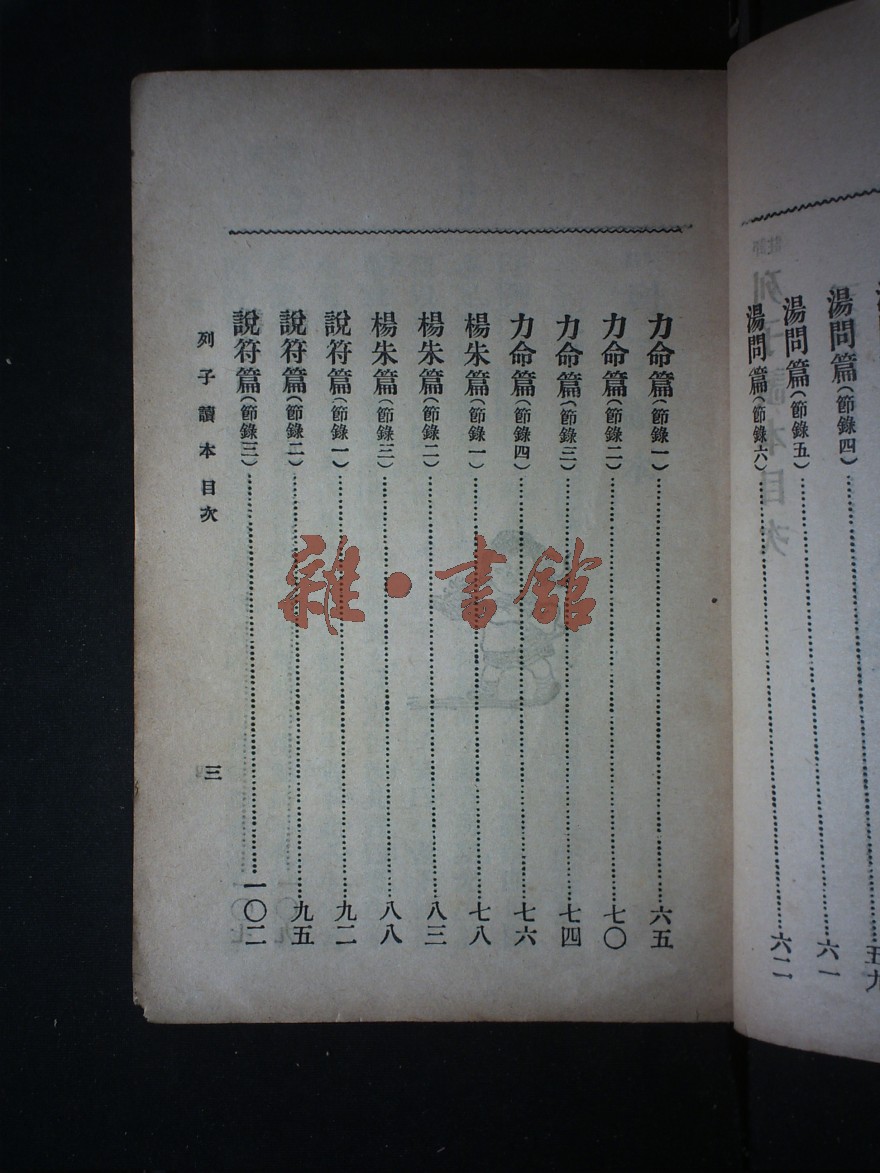 湯問篇(節錄四)……五九
湯問篇(節錄五)……六一
湯問篇(節錄六)……六二
力命篇(節錄一)……六五
力命篇(節錄二)……七〇
力命篇(節錄三)……七四
力命篇(節錄四)……七六
楊朱篇(節錄一)……七八
楊朱篇(節錄二)……八三
楊朱篇(節錄三)……八八
說符篇(節錄一)……九二
說符篇(節錄二)……九五
說符篇(節錄三)……一〇二
列子讀本目次
三
雜·書館